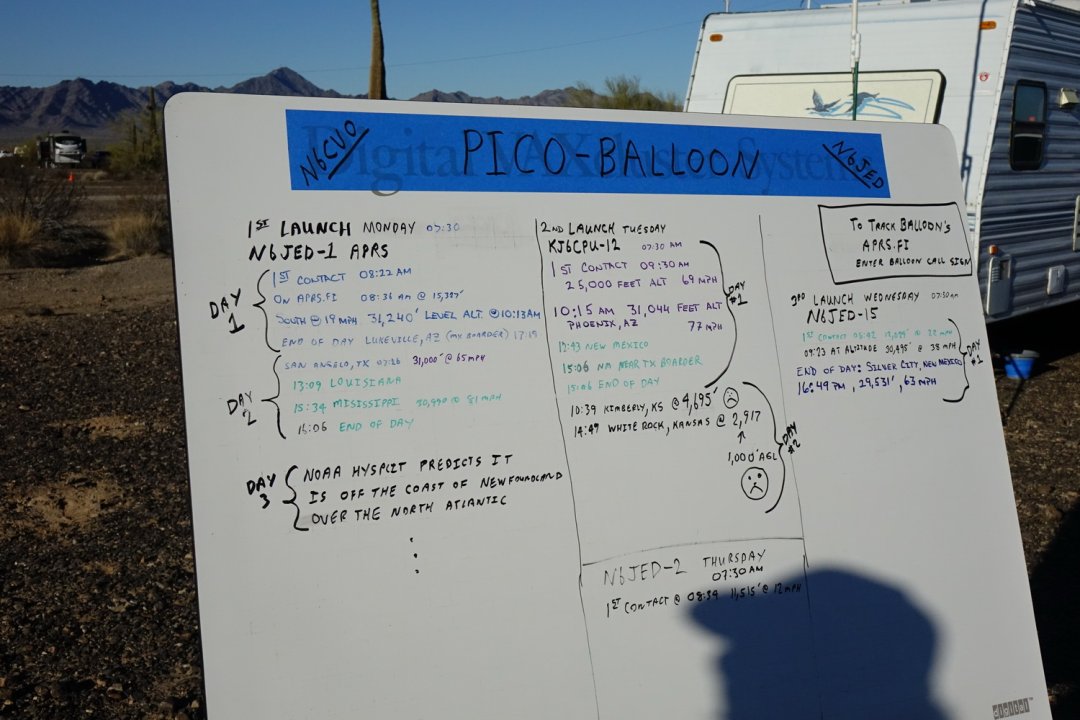 N6CVO
PICO-BALLOON
N6JED
1ST LAUNCH MONDAY 07:30
N6JED-1 APRS
DAY 1
1ST CONTACT 08:22 AM
ON APRS.FI 08:36 AM @ 15,387'
SOUTH @ 19 MPH 31,240' LEVEL ALT. @ 10:13AM
END OF DAY LUKEVILLE, AZ (MX BOARDER) 17:19
DAY 2
SAN ANGELO, TX 07:26 31,000' @ 65 MPH
13:09 LOUISIANA
15:34 MISSISSIPPI 30,990 @ 81 MPH
16:06 END OF DAY
DAY 3
NOAA HYSPLIT PREDICTS IT
IS OFF THE COAST OF NEWFOUNDLAND
OVER THE NORTH ATLANTIC
2ND LAUNCH TUESDAY
KJ6CPU-12 07:30 AM
1ST CONTACT 09:30 AM
25,000 FEET ALT 69 MPH
10:15 AM 31,044 FEET ALT
PHOENIX, AZ 77 MPH
DAY #1
NEW MEXICO
15:06 NM NEAR TX BOARDER
15:06 END OF DAY
10:39 KIMBERLY, KS @ 4,695'
14:47 WHITE ROCK, KANSAS @ 2,917
1,000' AGL
DAY #2
N6JED-2 THURSDAY
07:30 AM
1ST CONTACT @ 08:39 11,515' @ 12 MPH
TO TRACK BALLOON'S
APRS.FI
ENTER BALLOON CALL SIGN
3RD LAUNCH WEDNESDAY 07:30 AM
N6JED-15
1ST CONTACT 08:42 @ 22 MPH
09:23 AT ALTITUDE 30,495' @ 38 MPH
END OF DAY: SILVER CITY, NEW MEXICO
16:49 PM, 29,531', 63 MPH
DAY #1
digital